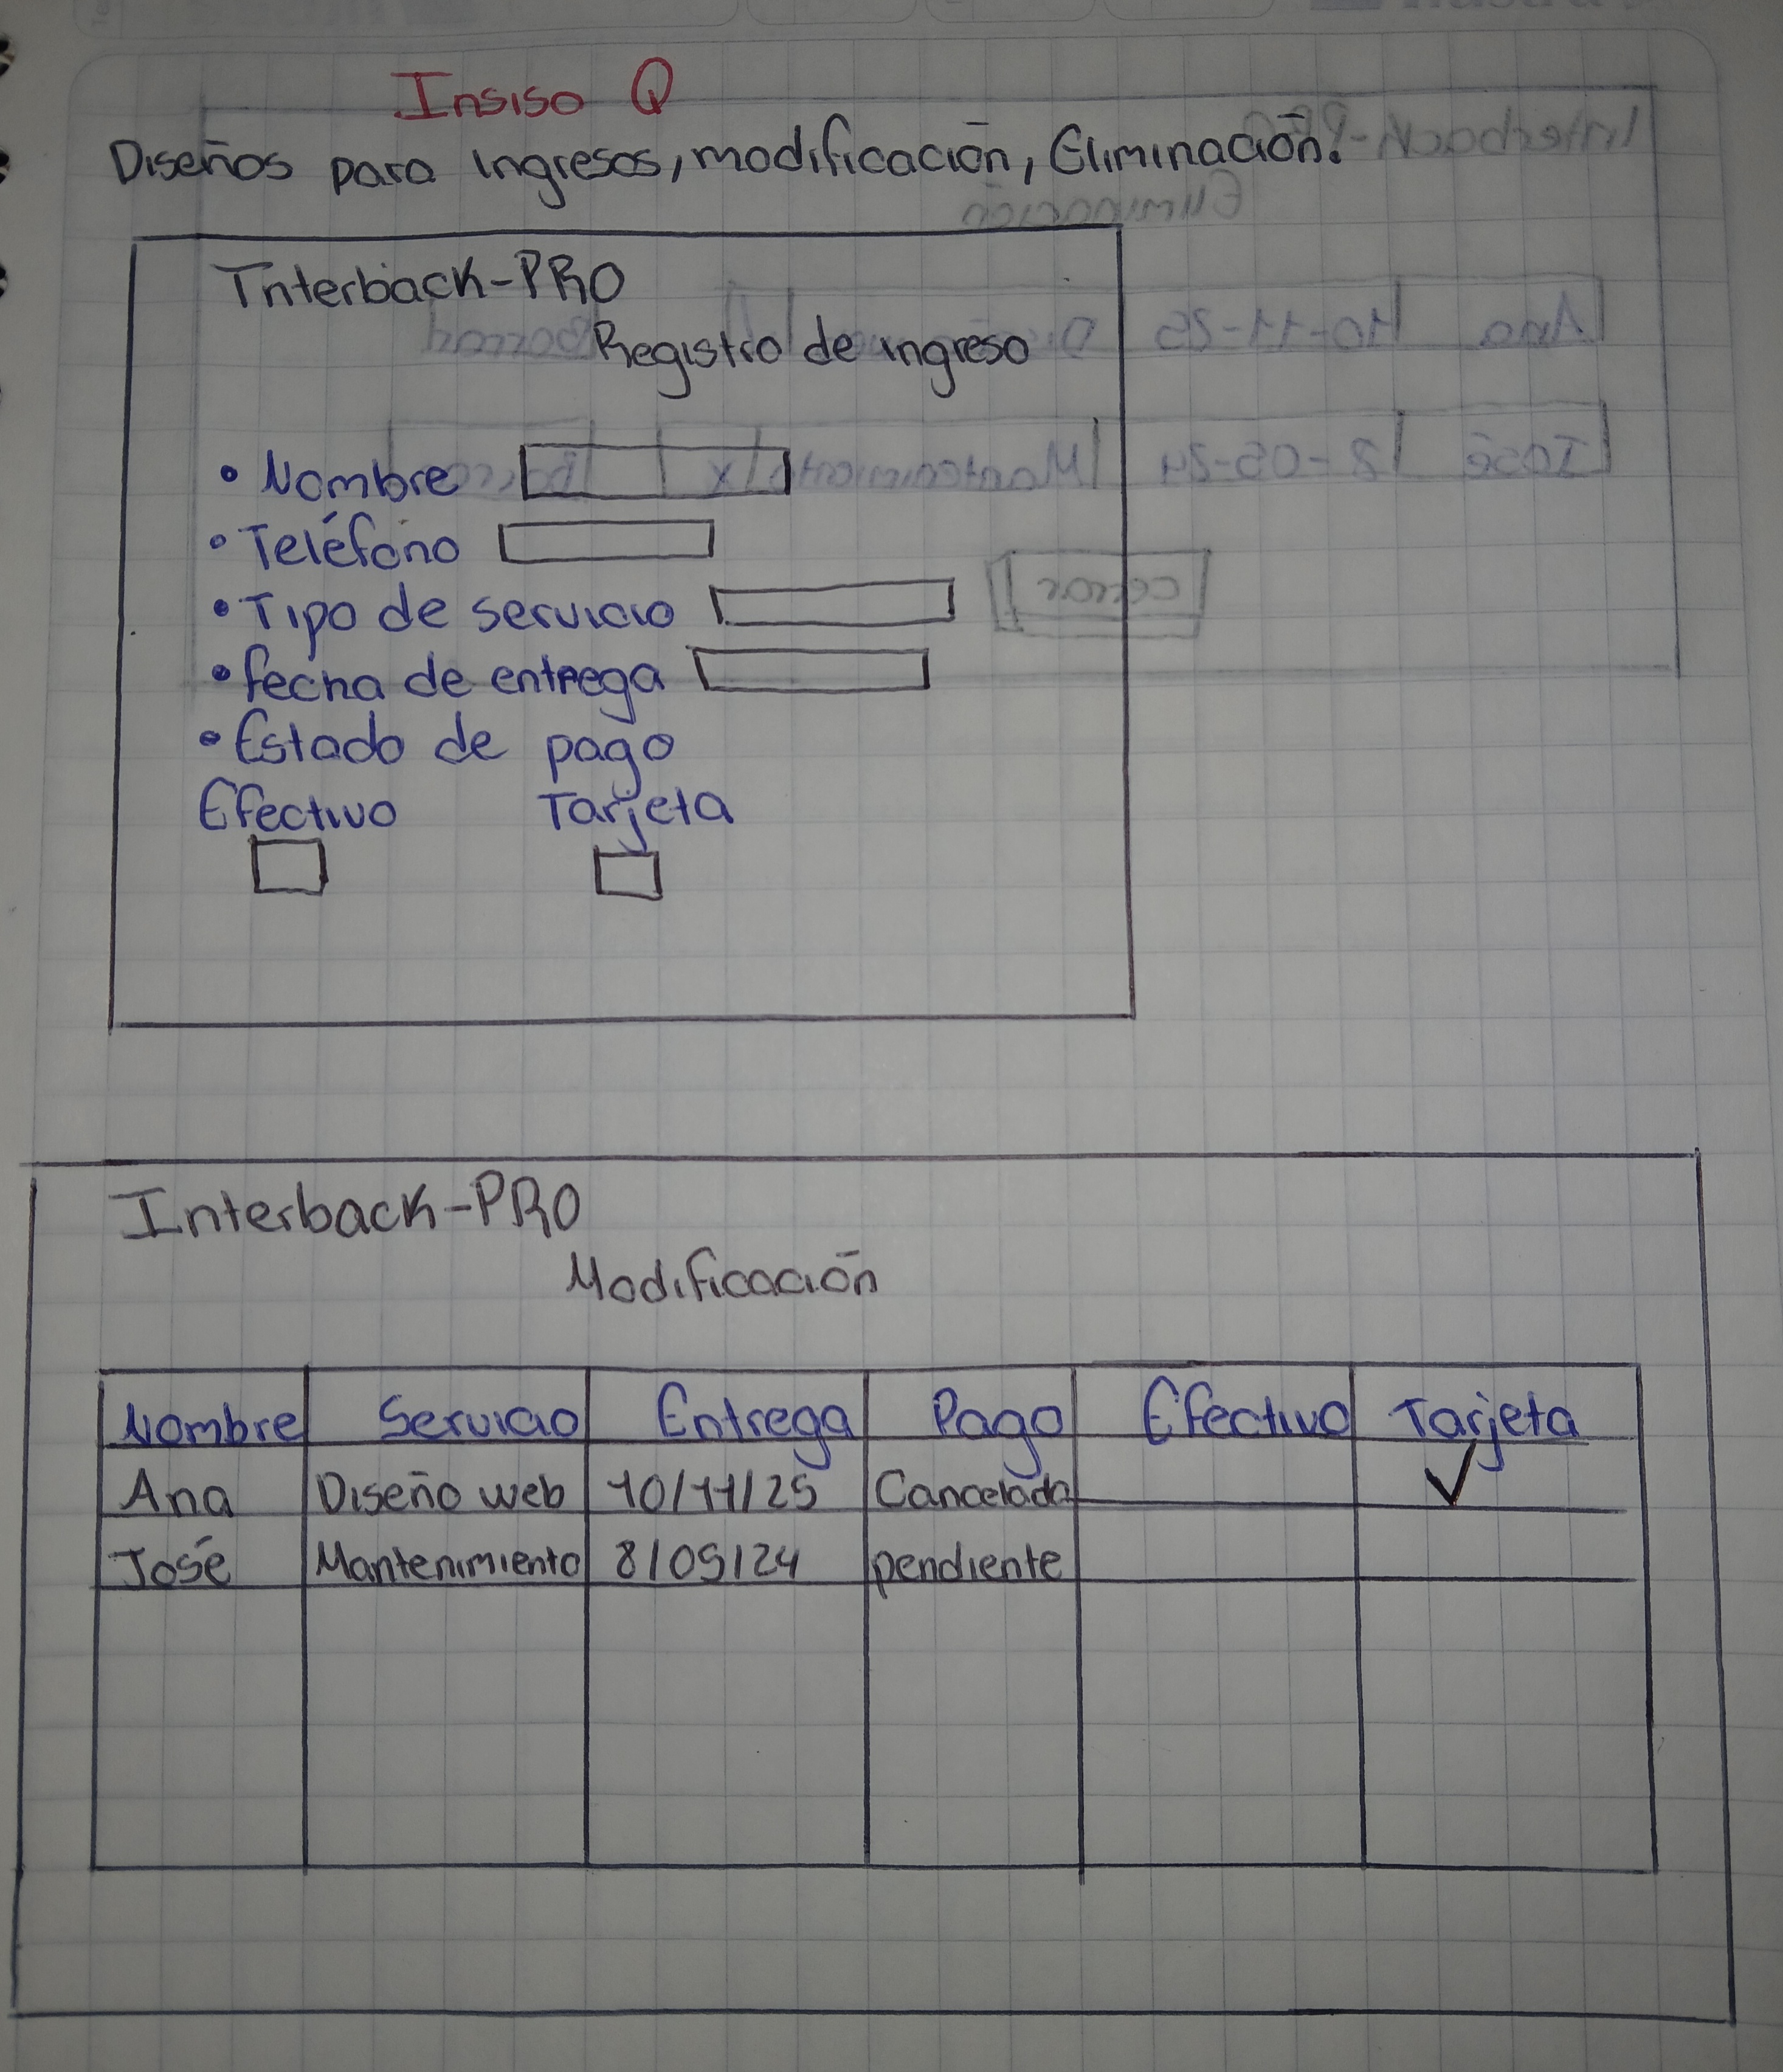 Insiso Q
Diseños para ingresos, modificación, Eliminación.
Interback-PRO
Registro de ingreso
• Nombre
• Teléfono
• Tipo de servicio
• fecha de entrega
• Estado de pago
Efectivo Tarjeta
Interback-PRO
Modificación
Nombre Servicio Entrega Pago Efectivo Tarjeta
Ana Diseño web 10/11/25 Cancelado ✓
José Mantenimiento 8/05/24 pendiente